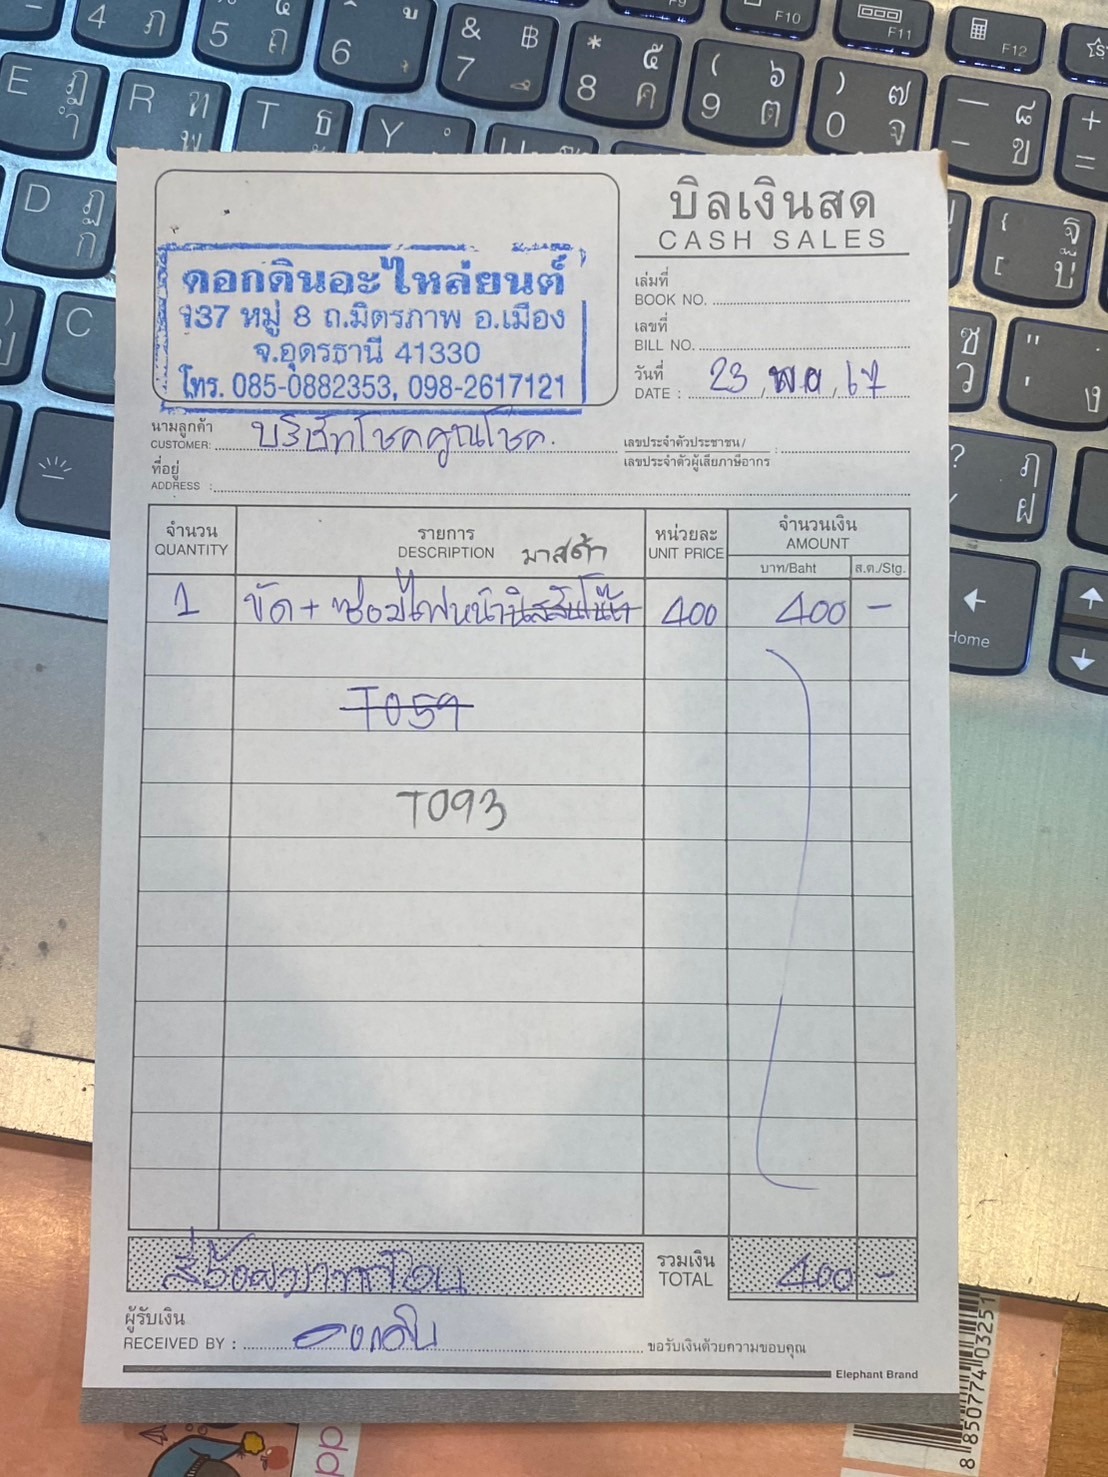 บิลเงินสด
CASH SALES
ดอกดินอะไหล่ยนต์
137 หมู่ 8 ถ.มิตรภาพ อ.เมือง
จ.อุดรธานี 41330
โทร. 085-0882353, 098-2617121
เล่มที่
BOOK NO.
เลขที่
BILL NO.
วันที่
DATE : 23 / พ.ค / 67
นามลูกค้า
CUSTOMER: บริษัทโชคคูณโชค.
เลขประจำตัวประชาชน /
เลขประจำตัวผู้เสียภาษีอากร :
ที่อยู่
ADDRESS :
จำนวน รายการ หน่วยละ จำนวนเงิน
QUANTITY DESCRIPTION มาสด้า UNIT PRICE AMOUNT
บาท/Baht ส.ต./Stg.
1 ขัด + ซ่อมไฟหน้า 400 400 -
T059
T093
สี่ร้อยบาทถ้วน
รวมเงิน
TOTAL 400 -
ผู้รับเงิน
RECEIVED BY :
ขอรับเงินด้วยความขอบคุณ
Elephant Brand
8 850774 03251
4 ภ
5 ถ
6
& ฿
7
* ๕
8 ค
( ๖
9 ต
) ๗
0 จ
— ๘
- ข
+
=
F9
F10
F11
F12
E ฎ
R ฑ
พ
T ธ
Y
D ฏ
ก
C
Home